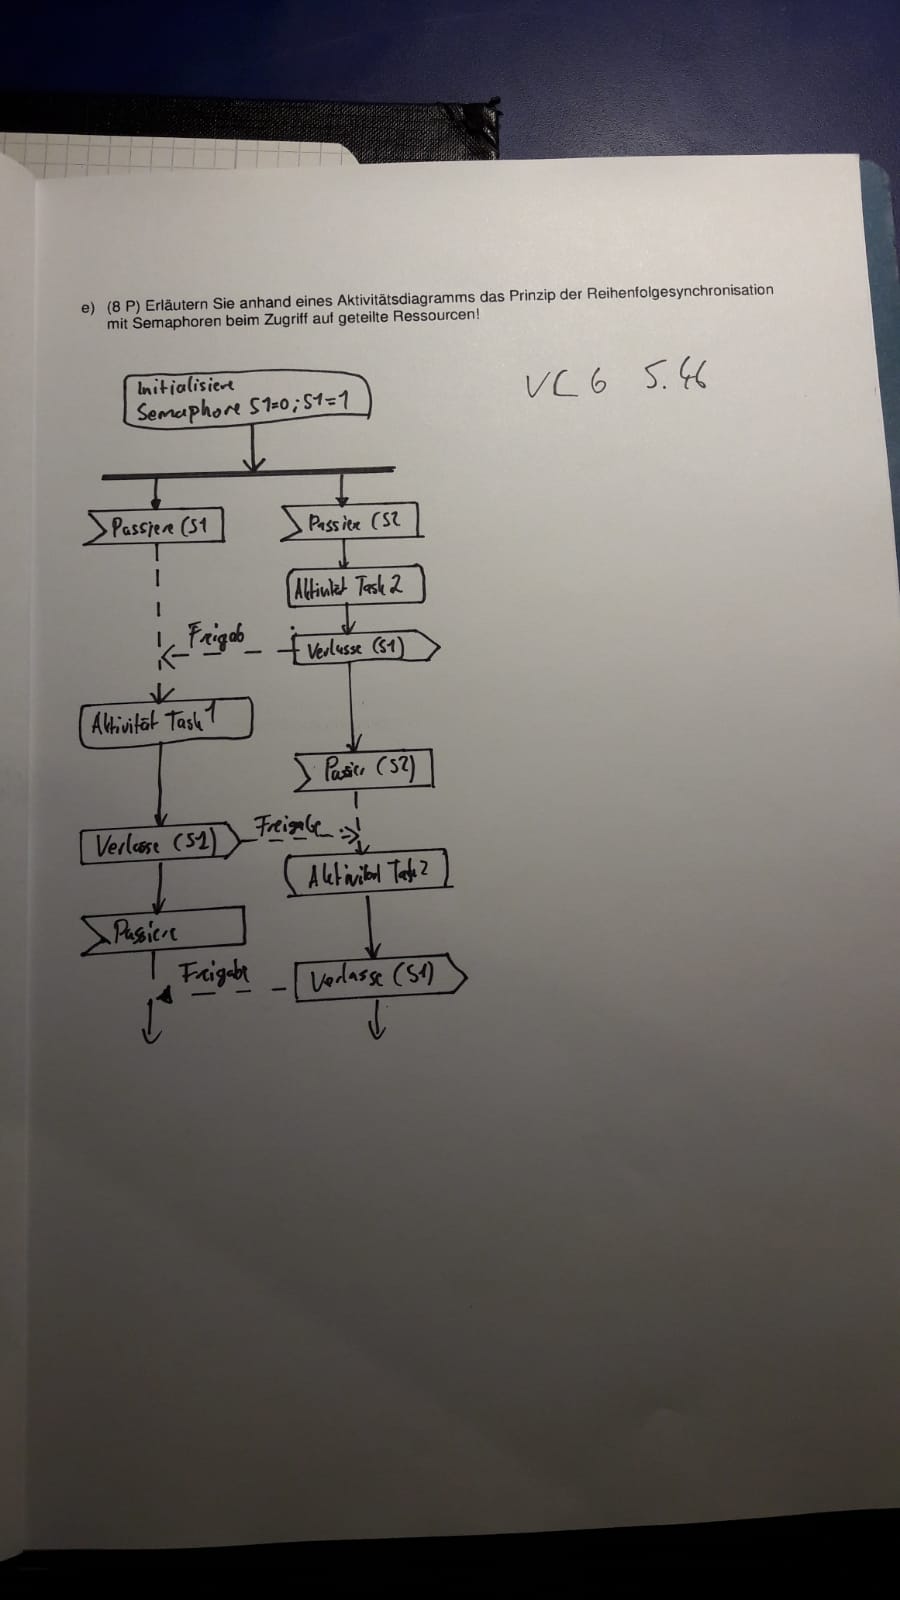 e) (8 P) Erläutern Sie anhand eines Aktivitätsdiagramms das Prinzip der Reihenfolgesynchronisation
mit Semaphoren beim Zugriff auf geteilte Ressourcen!
VC 6 S. 46
Initialisiere
Semaphore S1=0; S1=1
Passiere (S1
Passiere (S2
Aktivität Task 2
Freigab
Verlasse (S1)
Aktivität Task 1
Passier (S2)
Verlasse (S2)
Freigabe
Aktivität Task 2
Passiere
Freigabe
Verlasse (S1)